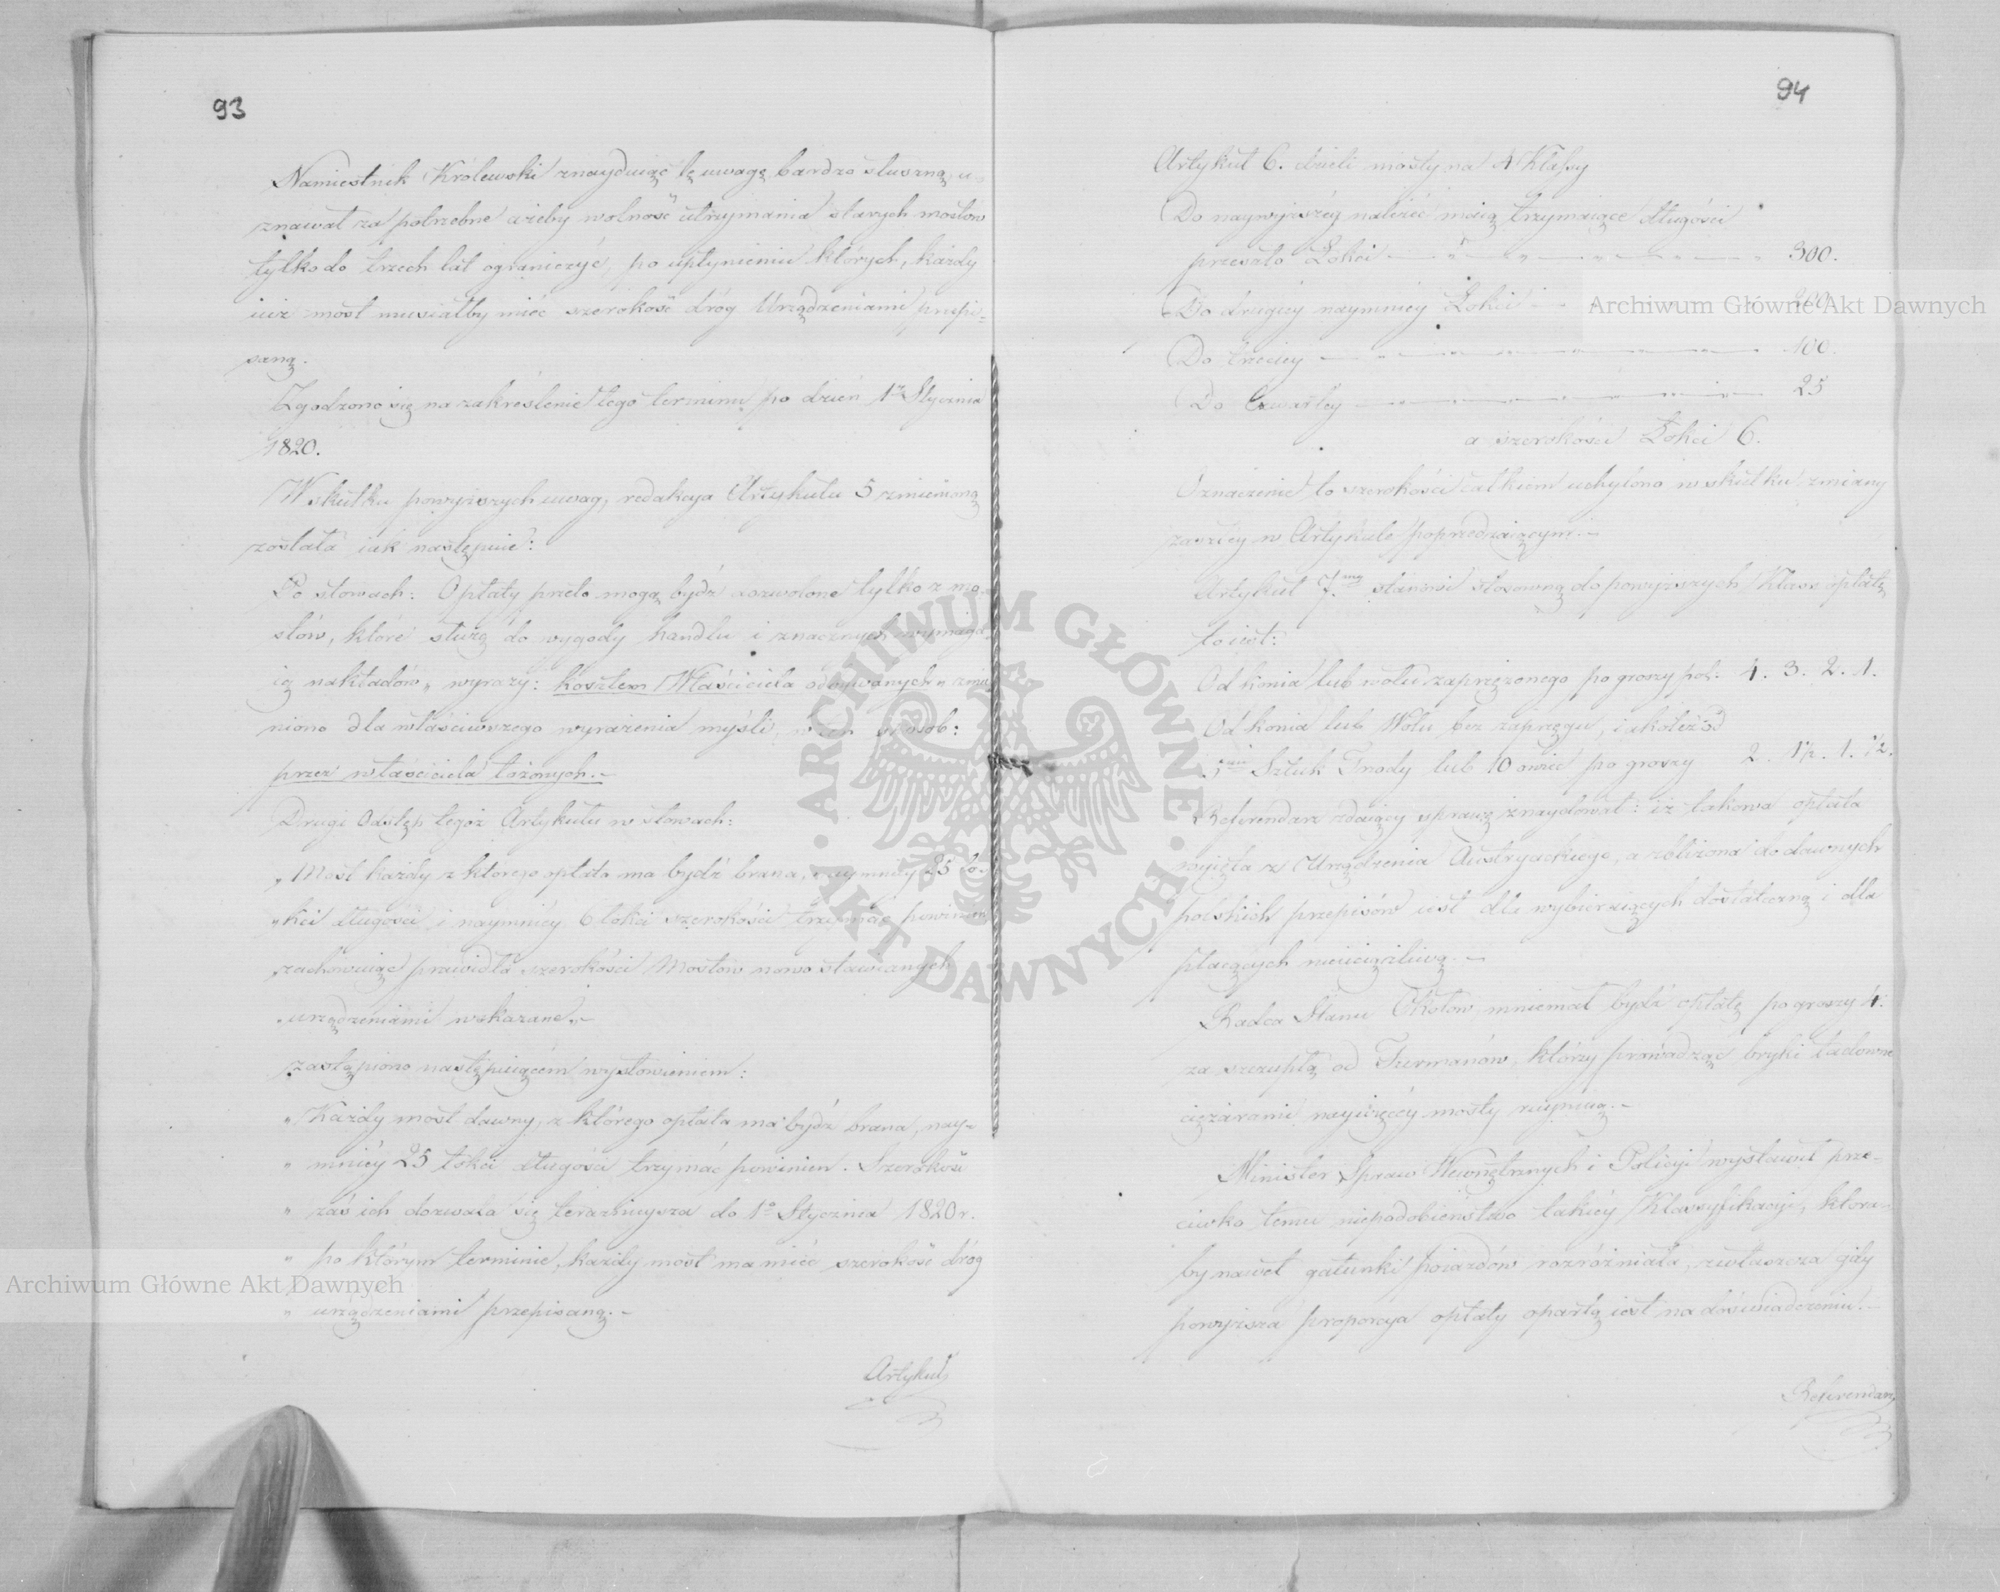 93
Namiestnik Królewski znayduiąc tę uwagę bardzo słuszną, u-
znawał za potrzebne ażeby wolność utrzymania starych mostów
tylko do trzech lat ograniczyć, po upłynieniu których, każdy
iuż most musiałby mieć szerokość dróg Urządzeniami przepi-
saną.
Zgodzono się na zakreślenie tego terminu po dzień 1 Stycznia
1820.
W skutku powyższych uwag, redakcya Artykułu 5 zmienioną
została iak następuie:
Po słowach: Opłaty przeto mogą bydź dozwolone tylko z mo-
stów, które służą do wygody handlu i znacznych wymaga-
ią nakładów, wyrazy: kosztem Właściciela odbywanych zmie-
niono dla właściwszego wyrażenia myśli, w ten sposob:
przez właściciela łożonych.-
Drugi Odstęp tegoż Artykułu w słowach:
„Most każdy z którego opłata ma bydź brana, naymniey 25 ło-
„kci długości i naymniey 6 łokci szerokości trzymać powinien
„zachowuiąc prawidła szerokości Mostów nowo stawianych
„urządzeniami wskazane.-
zastąpiono następuiącém wysłowieniem:
„Każdy most dawny, z którego opłata ma bydź brana, nay-
„mniéy 25 łokci długości trzymać powinien. Szerokość
„zaś ich dozwala się teraźnieysza do 1º Stycznia 1820 r.
„po którym terminie, każdy most ma mieć szerokość dróg
„urządzeniami przepisaną.-
Artykuł
94
Artykuł 6. dzieli mosty na 4 Klassy
Do naywyższéy należeć maią trzymaiące długości
przeszło Łokci 300.
Do drugiey naymniey Łokci 200
Do trzeciey 100.
Do Czwartey 25
a szerokości Łokci 6.
Oznaczenie to szerokości całkiem uchylono w skutku zmiany
zaszłey w Artykule poprzedzaiącym.-
Artykuł 7. stanowi stosowną do powyższych Klass opłatę
to iest:
Od konia lub wołu zaprzężonego po groszy pol: 4. 3. 2. 1.
Od konia lub Wołu bez zaprzęgu, iakoteż od
Sztuk Trzody lub 10 owiec po groszy 2. 1½. 1. ½.
Referendarz zdaiący sprawę znaydował: iż takowa opłata
wzięta z Urządzenia Austryackiego, a zbliżona do dawnych
polskich przepisów iest dla wybieraiących dostateczną i dla
płacących nieuciążliwą.-
Radca Stanu Okołow mniemał bydź opłatę po groszy 4.
za szczupłą od Furmanów, którzy prowadząc bryki ładowne
ciężarami naywięcéy mosty ruynuią.-
Minister Spraw Wewnętrznych i Policyi wystawił prze-
ciwko temu niepodobieństwo takiéy Klassyfikacyi, która-
by nawet gatunki poiazdów rozróżniała, zwłaszcza gdy
powyższa proporcya opłaty opartą iest na doświadczeniu.-
Referendarz
Archiwum Główne Akt Dawnych
Archiwum Główne Akt Dawnych
ARCHIWUM GŁÓWNE · AKT DAWNYCH ·